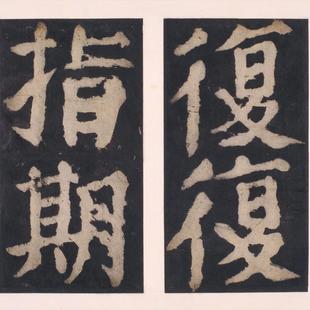 復復
指期